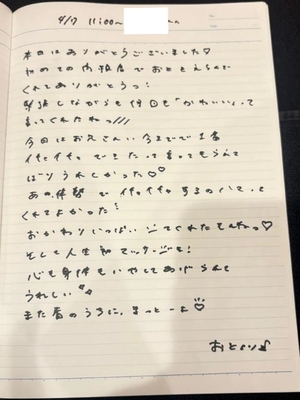 4/7 11:00~
本日はありがとうございました♡
初めての内相店でおとえらんで
くれてありがとうっ!
緊張しながらも何回も「かわいい」って
言ってくれたねっ///
今回はお兄さん、今までで1番
イチャイチャできたって言ってもらえて
ばりうれしかった♡♡
あの体勢でイチャイチャするのハマって
くれてよかった!
おかわりいっぱいしてくれたもんねっ♡
そして人生初マッサージも!
心も身体もいやしてあげられて
うれしい
また春のうちに、まっとーよ♡
おとより♪